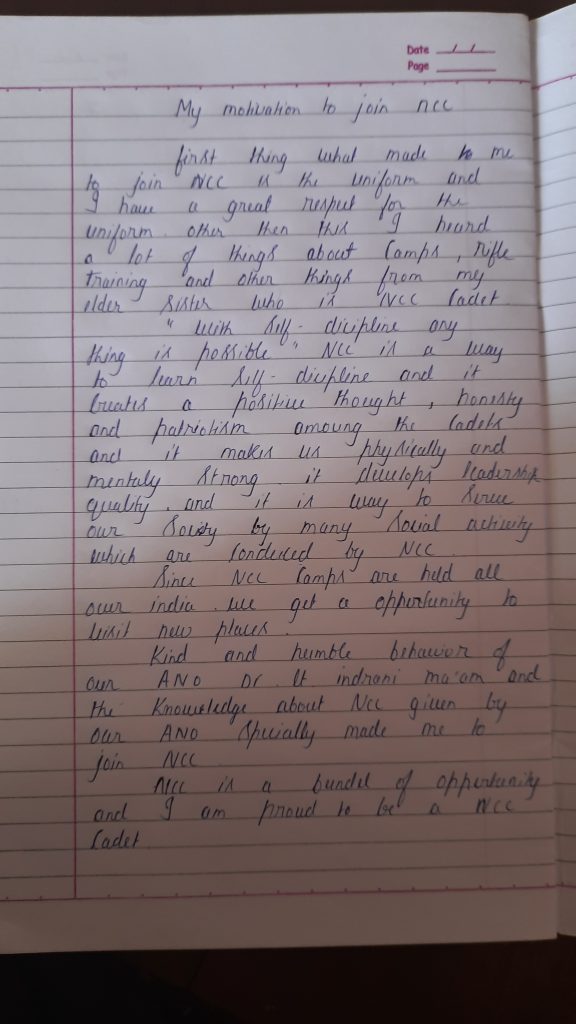 Date / /
Page
My motivation to join ncc
first thing what made to me
to join NCC is the uniform and
I have a great respect for the
uniform. other then this I heard
a lot of things about Camps, rifle
training and other things from my
elder sister who is NCC Cadet
" with self-dicipline any
thing is possible " NCC is a way
to learn self-dicipline and it
creates a positive thought, honesty
and patriotism amoung the Cadets
and it makes us physically and
mentaly strong. it develops leadership
quality. and it is way to serve
our Soisty by many Social activity
which are Conducted by NCC
Since NCC Camps are held all
over india. we get a opportunity to
visit new places.
Kind and humble behavior of
our ANO Dr. lt indrani ma'am and
the Knowledge about NCC given by
our ANO Specially made me to
join NCC
NCC is a bundel of opportunity
and I am proud to be a NCC
Cadet.